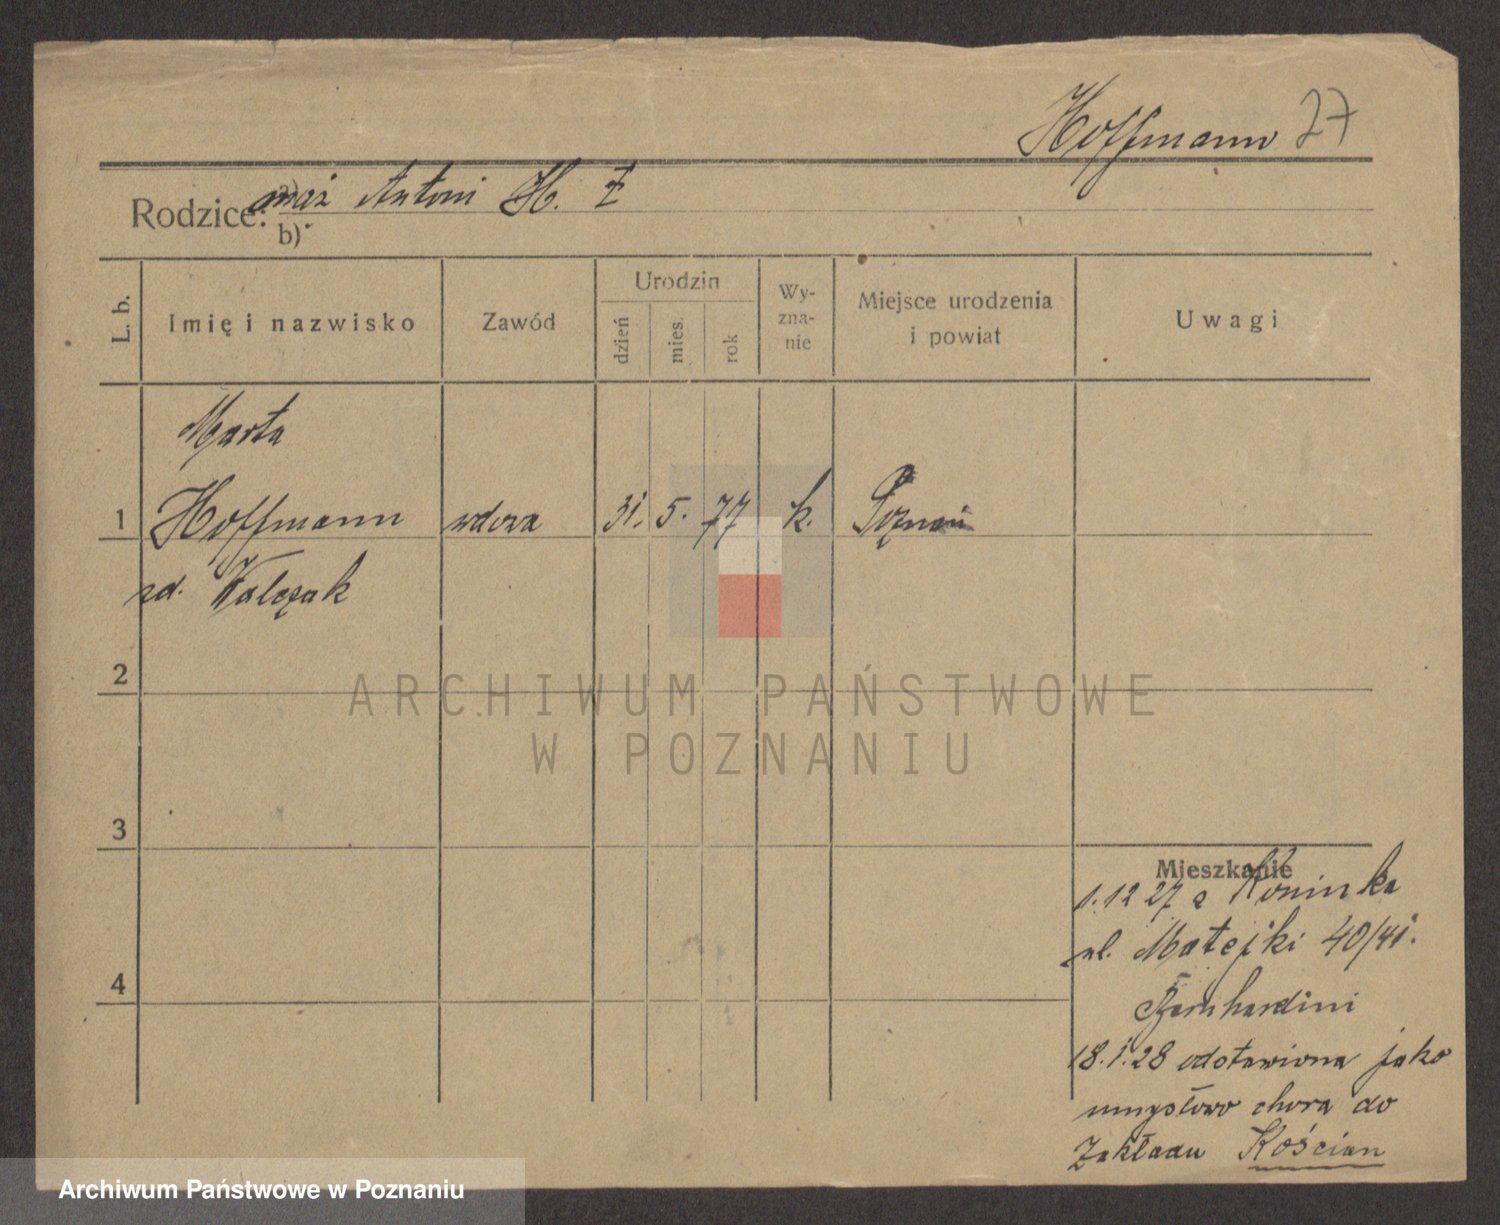 Hoffmann 27
mąż Antoni H. ‡
Rodzice: a)
b)
L. b.
Imię i nazwisko
Zawód
Urodzin
dzień
mies.
rok
Wy-
zna-
nie
Miejsce urodzenia
i powiat
Uwagi
Marta
1 Hoffmann wdowa 31. 5. 77 k. Poznań
zd. Walczak
2
3
4
ARCHIWUM PAŃSTWOWE
W POZNANIU
Mieszkanie
1.12 27 z Koninka
ul. Matejki 40/41.
Bernhardini
18.1.28 odstawiona jako
umysłowo chora do
Zakładu Kościan
Archiwum Państwowe w Poznaniu